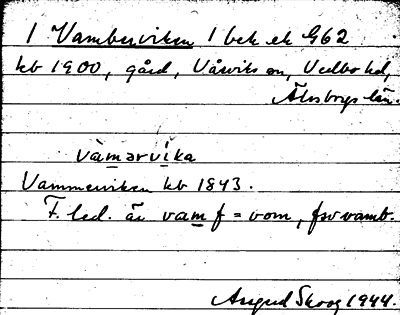 1 Vamberviken 1 bek ek G62
kb 1900, gård, Vårviks sn, Vedbo hd,
Älvsborgs län.
vàmərvika
Vammerviken kb 1843.
F. led. är vam f = vom, fsv vamb.
Astrid Skoog 1944.